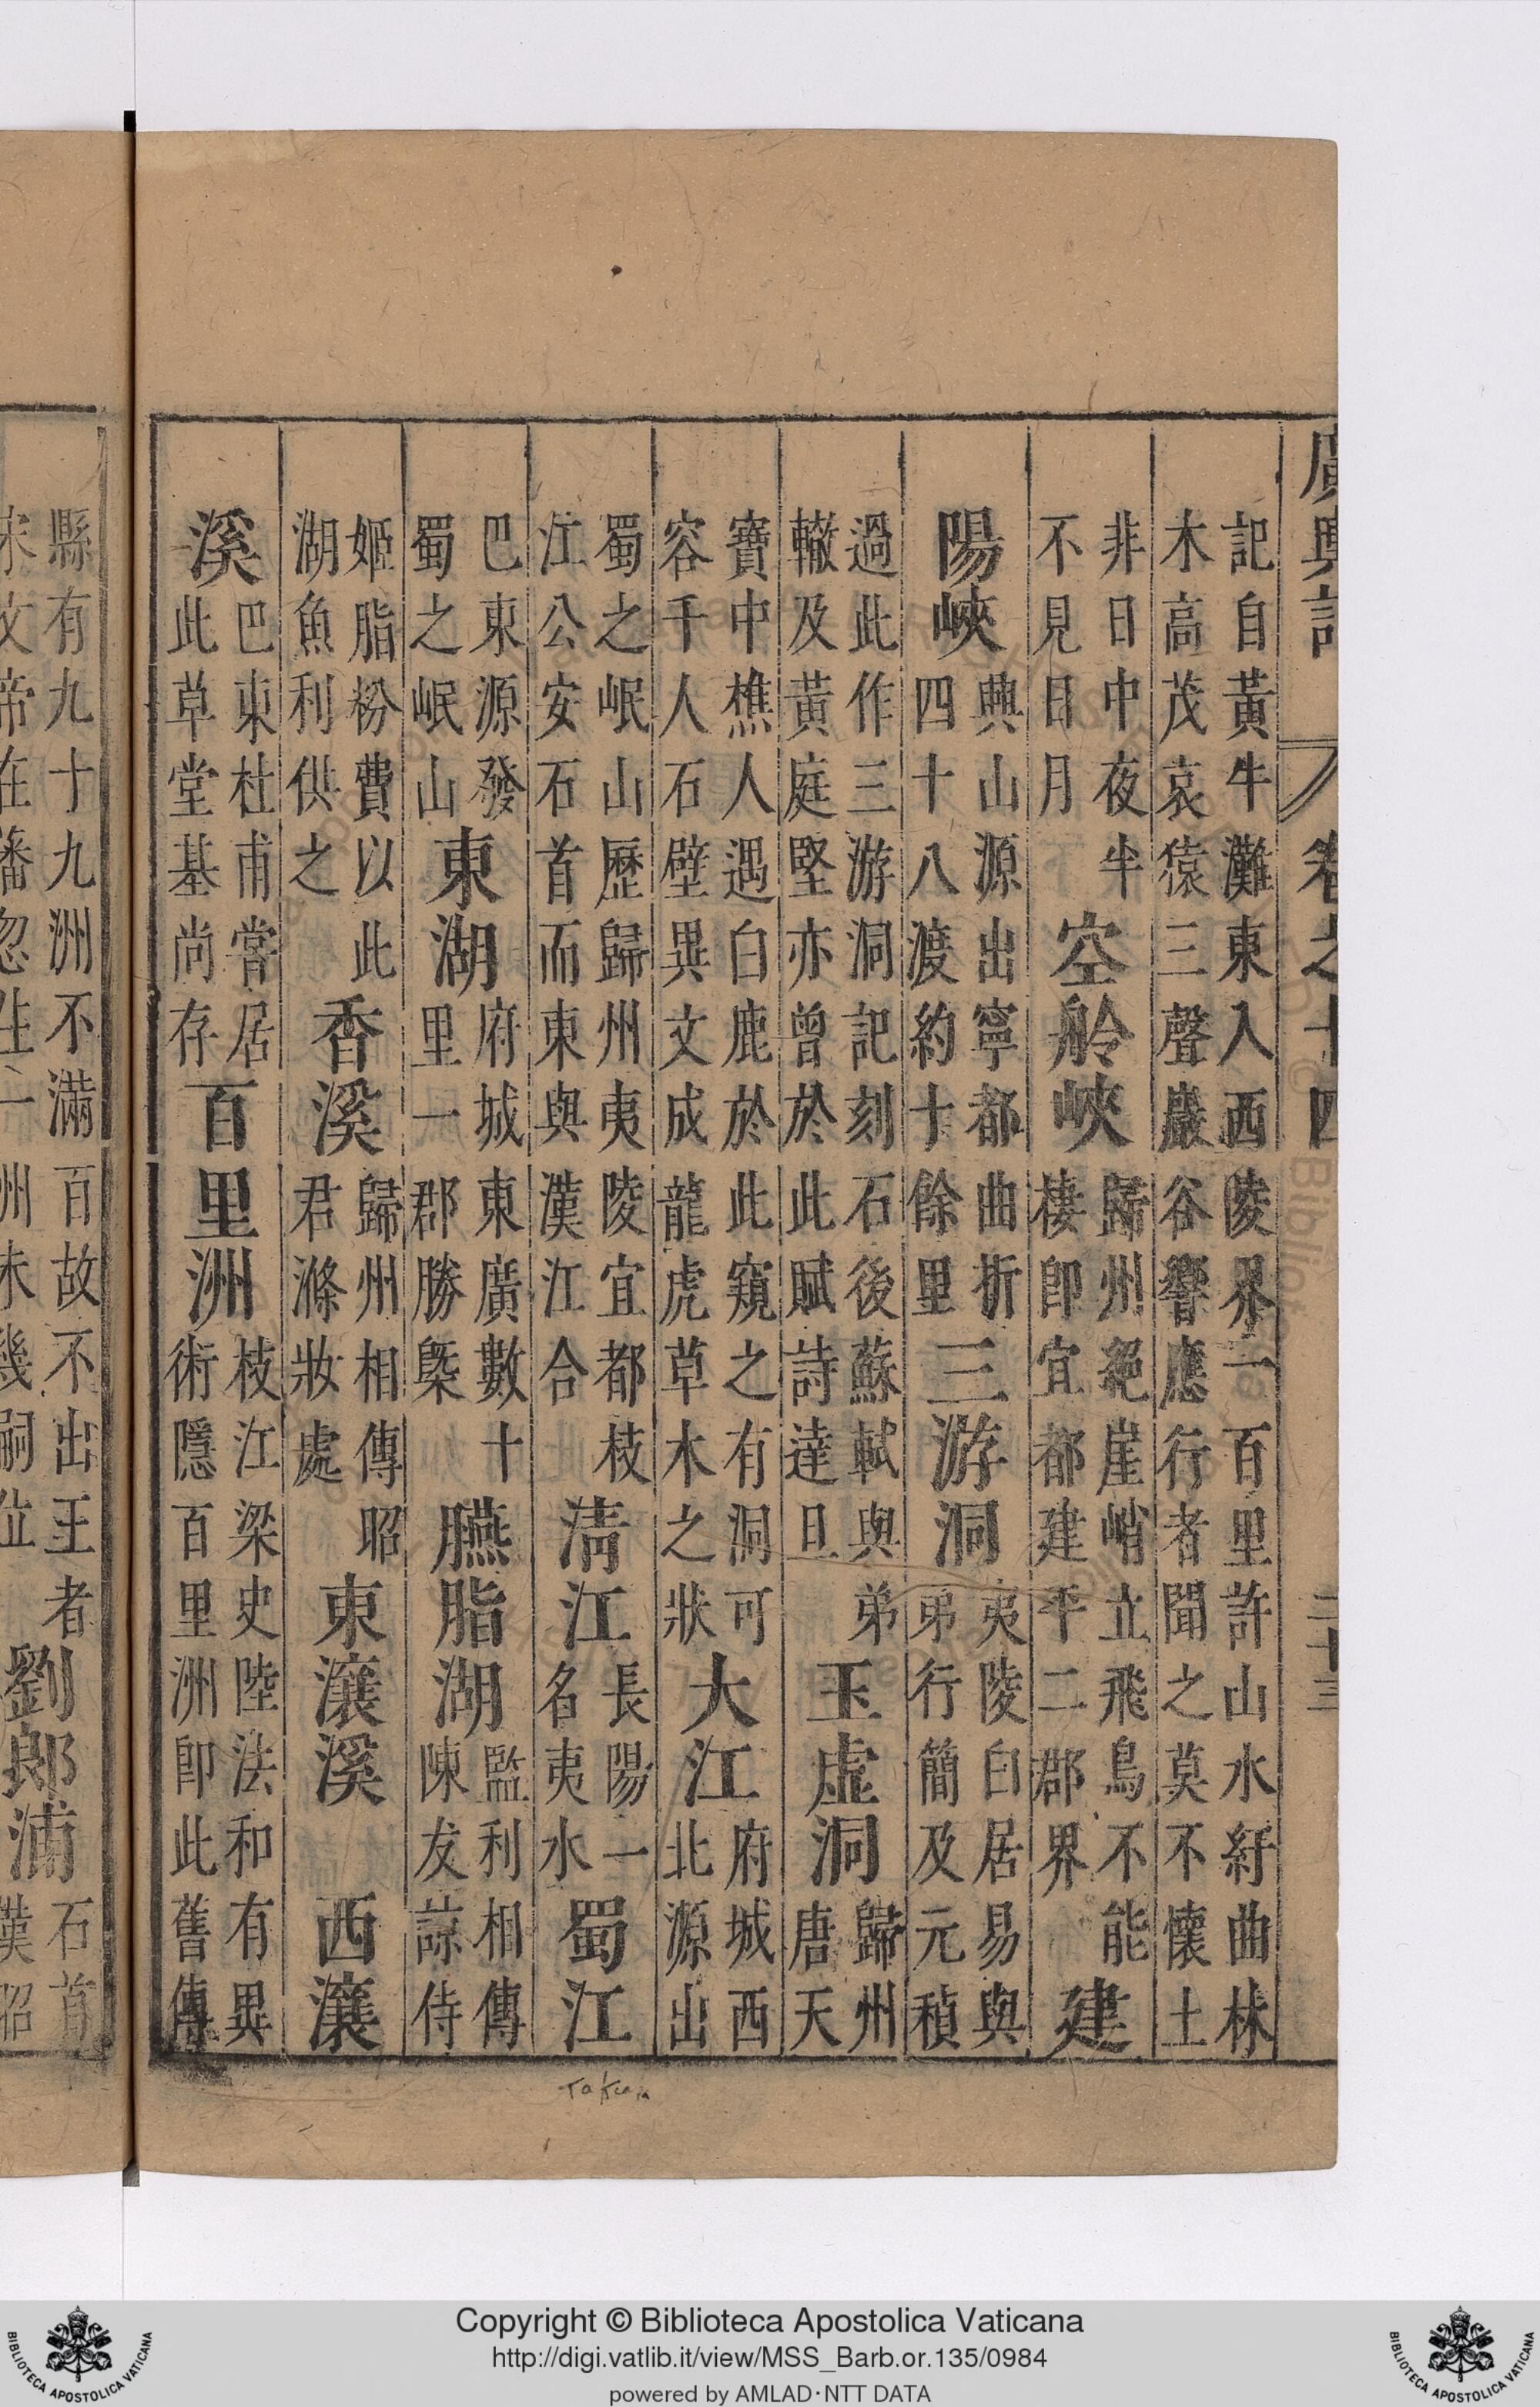 廣輿記 卷之十四 二十三
記自黃牛灘東入西陵界一百里許山水紆曲林
木高茂哀猿三聲巖谷響應行者聞之莫不懷土
非日中夜半
不見日月
空舲峽
歸州絕崖峭立飛鳥不能
棲卽宜都建平二郡界
建
陽峽
興山源出寧都曲折
四十八渡約十餘里
三游洞
夷陵白居易與
弟行簡及元稹
過此作三游洞記刻石後蘇軾與弟
轍及黃庭堅亦曾於此賦詩達旦
玉虛洞
歸州
唐天
寶中樵人遇白鹿於此窺之有洞可
容千人石壁異文成龍虎草木之狀
大江
府城西
北源出
蜀之岷山歷歸州夷陵宜都枝
江公安石首而東與漢江合
清江
長陽一
名夷水
蜀江
巴東源發
蜀之岷山
東湖
府城東廣數十
里一郡勝槩
臙脂湖
監利相傳
陳友諒侍
姬脂粉費以此
湖魚利供之
香溪
歸州相傳昭
君滌妝處
東瀼溪
西瀼
溪
巴東杜甫嘗居
此草堂基尚存
百里洲
枝江梁史陸法和有異
術隱百里洲卽此舊傳
縣有九十九洲不滿百故不出王者
宋文帝在藩忽生一洲未幾嗣位
劉郎浦
石首
漢昭
Takun
Copyright © Biblioteca Apostolica Vaticana
http://digi.vatlib.it/view/MSS_Barb.or.135/0984
powered by AMLAD·NTT DATA
BIBLIOTECA APOSTOLICA VATICANA
BIBLIOTECA APOSTOLICA VATICANA